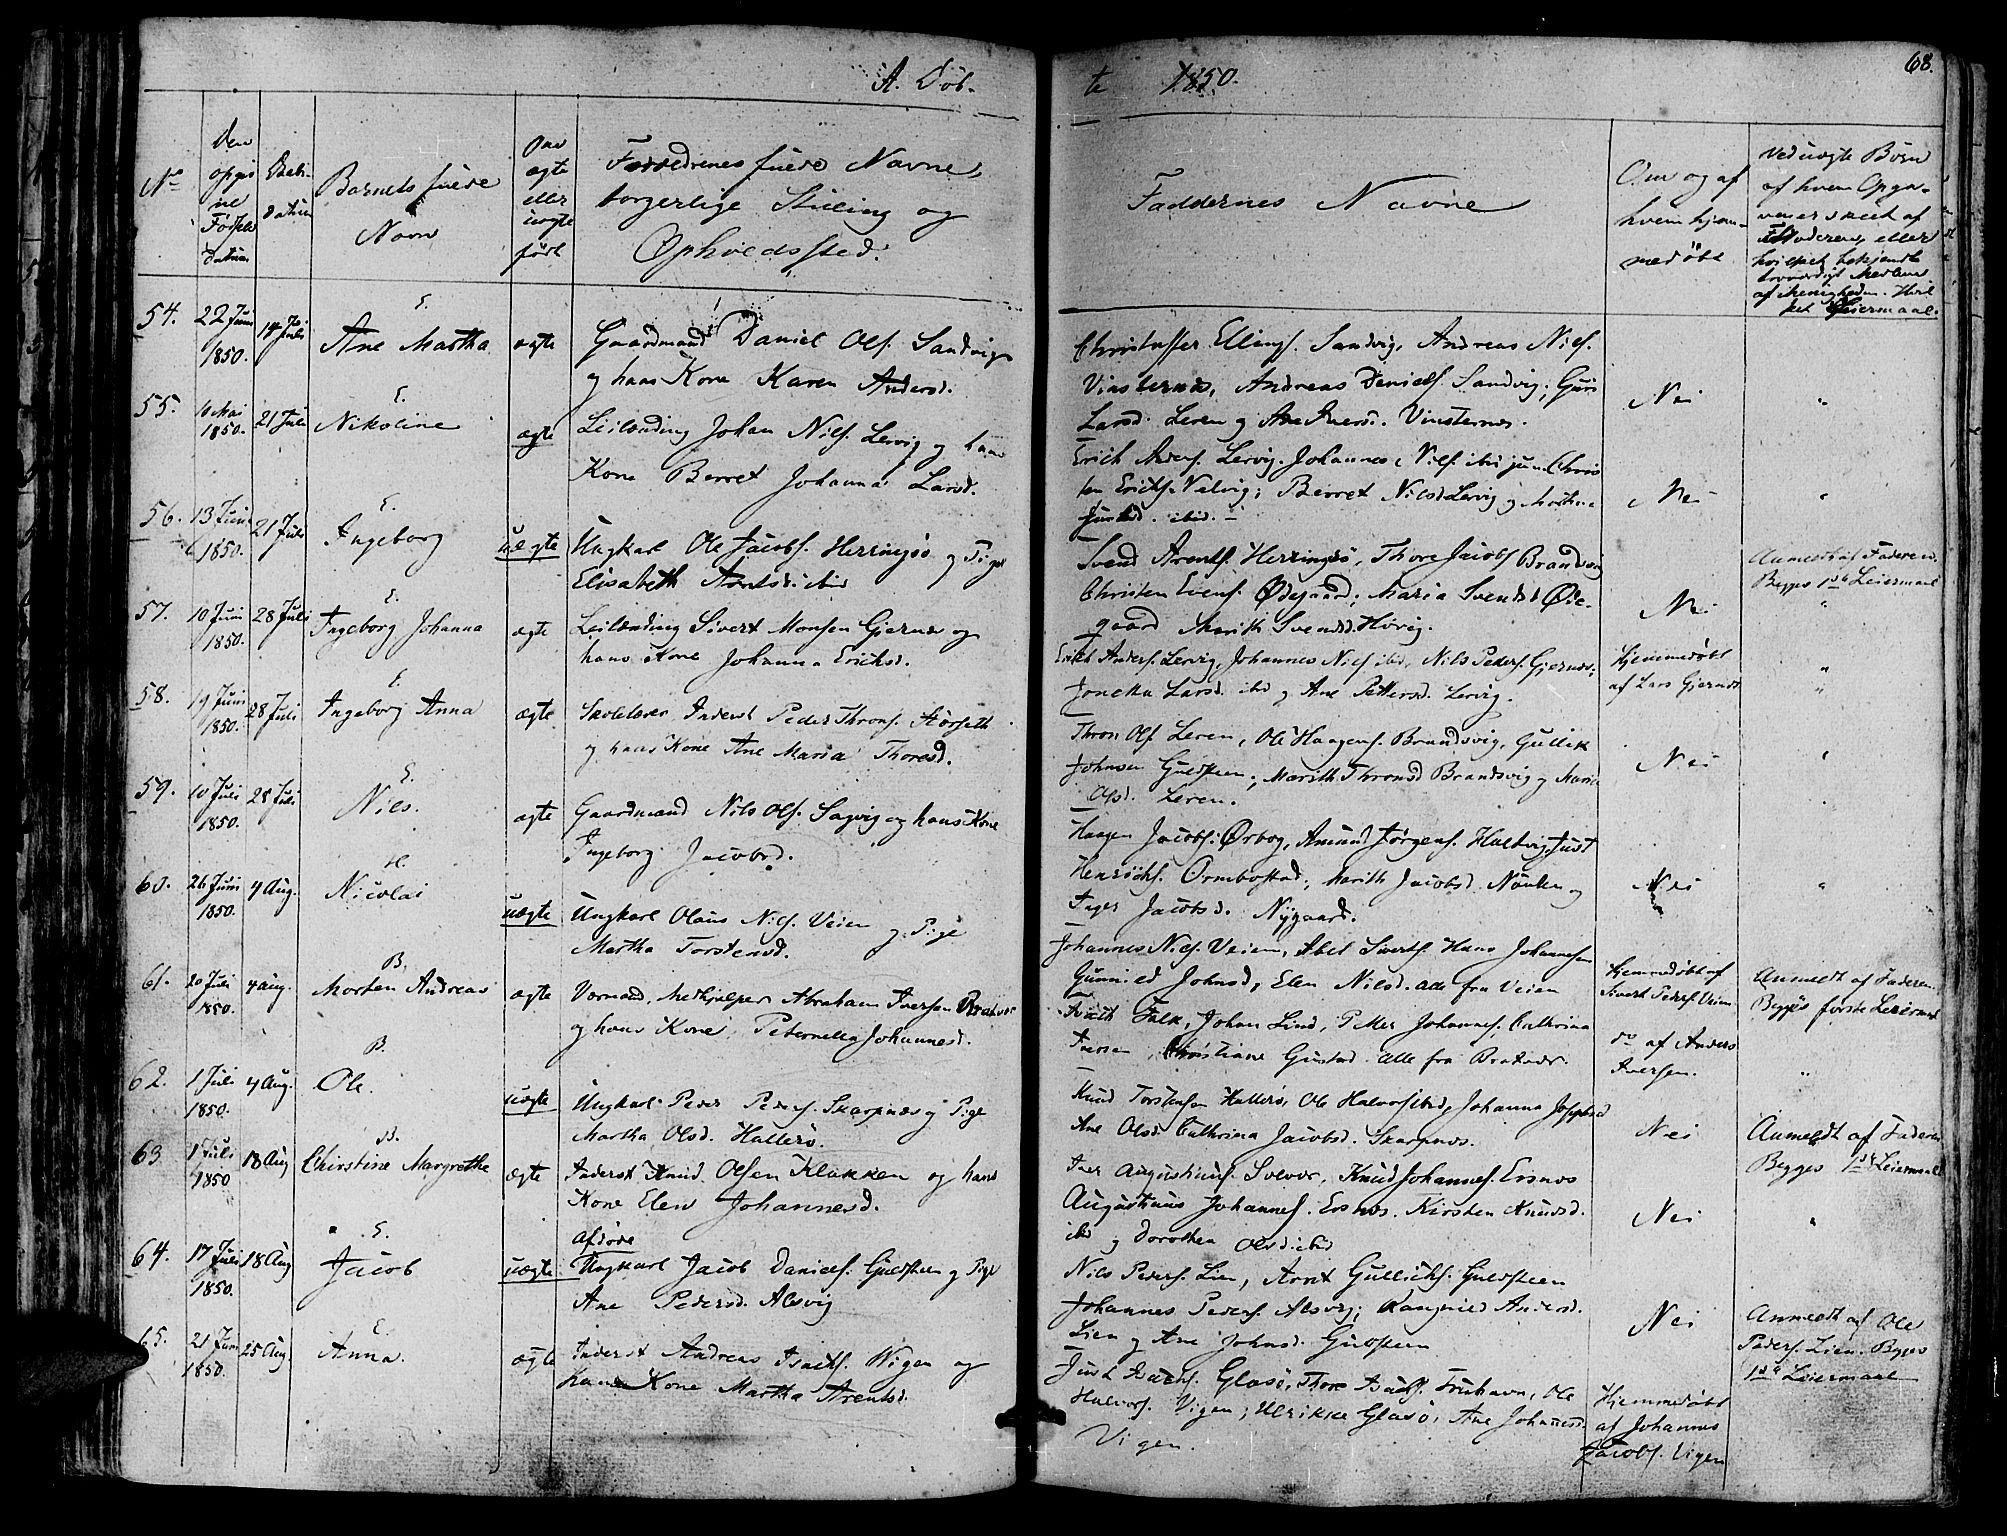 A. Döb-
te 1850.
68.
No
Den opgivne Fødsels Datum
Daabs Datum
Barnets fulde Navn
Om ægte eller uægte født
Forældrenes fulde Navne, borgerlige Stilling og Opholdssted.
Faddernes Navne
Om og af hvem hjemmedøbt
Ved uægte Børn af hvem Opgaven er skeet af Moderen, eller hvilket bekjendt troværdigt Medlem af Menigheden.
Leiermaal.
54. 22 Juni 1850. 14 Juli
E.
Ane Martha ægte Gaardmand Daniel Ols. Sandvig
og hans Kone Karen Andersd.
Christoffer Ellings. Sandvig, Andreas Niels.
Vinsternes, Andreas Daniels. Sandvig; Guri
Larsd. Leren og Ane Iversd. Vinsternes.
Nei "
55. 6 Mai 1850. 21 Juli
E.
Nikoline ægte Leilænding Johan Nils. Lervig og hans
Kone Berret Johanna Larsd.
Erich Anders. Lervig, Johannes Nils. ibid jun. Chris
ten Erichs. Valvig; Berret Nilsd. Lervig og Martha
ibid.
Nei "
56. 13 Juni 1850. 21 Juli
E.
Ingeborg uægte Ungkarl Ole Jacobs. Herringsø og Pige
Elisabeth Arntsd. ibid
Svend Arents. Herringsø, Thore Jacobs. Brandsvig
Christen Evens. Ødegaard; Maria Svendsd. Øde-
gaard Marith Svendsd. Hørig.
Nei
Anmeldt af Faderen.
Begges 1ste Leiermaal
57. 10 Juni 1850. 28 Juli
E.
Ingeborg Johanna ægte Leilænding Sivert Monsen Gjernes og
hans Kone Johanna Erichsd.
Erich Anders. Lervig, Johannes Niels. ibid, Nils Peders. Gjernes;
Larsd. ibid og Ane Pettersd. Lervig.
Hjemmedøbt
af Lars Gjernes
"
58. 19 Juni 1850. 28 Juli
E.
Ingeborg Anna ægte Skolelærer Inderst Peder Throns. Størseth
og hans Kone Ane Maria Thoresd.
Thron Ols. Leren, Ole Haagens. Brandsvig, Gullik
Johnsen Guldsteen; Marith Thronsd. Brandsvig og Maria
Olsd. Leren.
Nei "
59. 10 Juli 1850. 28 Juli
E.
Nils. ægte Gaardmand Nils Ols. Sagvig og hans Kone
Ingeborg Jacobsd.
Haagen Jacobs. Ørbog, Amund Jørgens. Haltvig, Just
Henrichs. Ormbostad; Marith Jacobsd. og
Inger Jacobsd. Nygaard.
Nei "
60. 26 Juni 1850. 4 Aug.
H.
Nicolai uægte Ungkarl Olaus Nils. Veien og Pige
Martha Torstensd.
Johannes Nils. Veien, Abel Siverts. Hans Johannesen
Gunnild Johnsd, Elen Nilsd. Alle fra Veien
Hjemmedøbt af
Sivert Peders. Veien
Anmeldt af Faderen.
Begges første Leiermaal
61. 20 Juli 1850. 4 Aug.
B.
Morten Andreas ægte Medhjelper Abraham Iversen Bratvær
og hans Kone Peternella Johannesd.
Falk, Johan Lind, Peter Johannes. Cathrina
Iversen, Christiane Gustad. Alle fra Bratvær.
do af Anders
Iversen.
"
62. 1 Juli 1850. 4 Aug.
B.
Ole. uægte Ungkarl Peder Peders. Skarpnes og Pige
Martha Olsd. Hallerø.
Knud Torstensen Hallerø, Ole Halvors. ibid, Johanna
Ane Olsd. Cathrina Jacobsd. Skarpnes.
Nei
Anmeldt af Faderen
Begges 1ste Leiermaal
63. 1 Juli 1850 18 Aug
B.
Christine Margrethe ægte Inderst Knud Olsen Klakken og hans
Kone Elen Johannesd.
Iver Augustinus. Solvær, Knud Johannes. Ersnes
Augustinus Johannes. Ersnes. Kirsten Knudsd.
ibid og Dorothea Olsd. ibid
Nei "
64. 17 Juli 1850. 18 Aug
E.
Jacob uægte afdøde
Ungkarl Jacob Daniels. Guldsteen og Pige
Ane Pedersd. Alsvig
Nils Peders. Lien, Arnt Gullichs. Guldsteen
Johannes Peders. Alsvig; Rangnild Andersd.
Lien og Ane Johnsd. Guldsteen
Nei
Anmeldt af Ole
Peders. Lien. Begges
1ste Leiermaal
65. 21 Juni 1850. 25 Aug.
E.
Anna. ægte Inderst Andreas Isachs. Wigen og
hans Kone Martha Arentsd.
Just Isachs. Glasø, Thore Isachs. Fruhavn, Ole
Halvors. Vigen; Ulrikke Glasø, Ane Johannesd.
Vigen.
Hjemmedøbt
af Johannes
Jacobs. Vigen